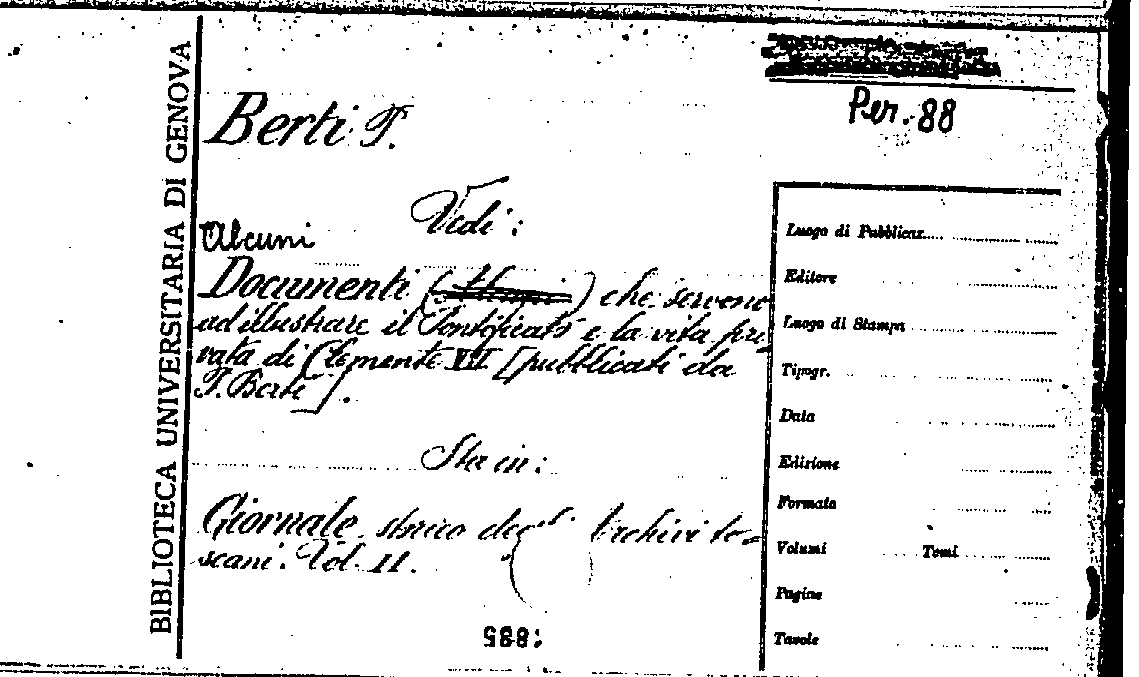 BIBLIOTECA UNIVERSITARIA DI GENOVA
Per. 88
Berti P.
Vedi:
Alcuni
Documenti () che servono
ad illustrare il Pontificato e la vita pri
vata di Clemente VII [pubblicati da
P. Berti].
Sta in:
Giornale storico degli Archivi to=
scani. Vol. II.
Luogo di Pubblicaz.
Editore
Luogo di Stampa
Tipogr.
Data
Edizione
Formato
Volumi Tomi
Pagine
Tavole